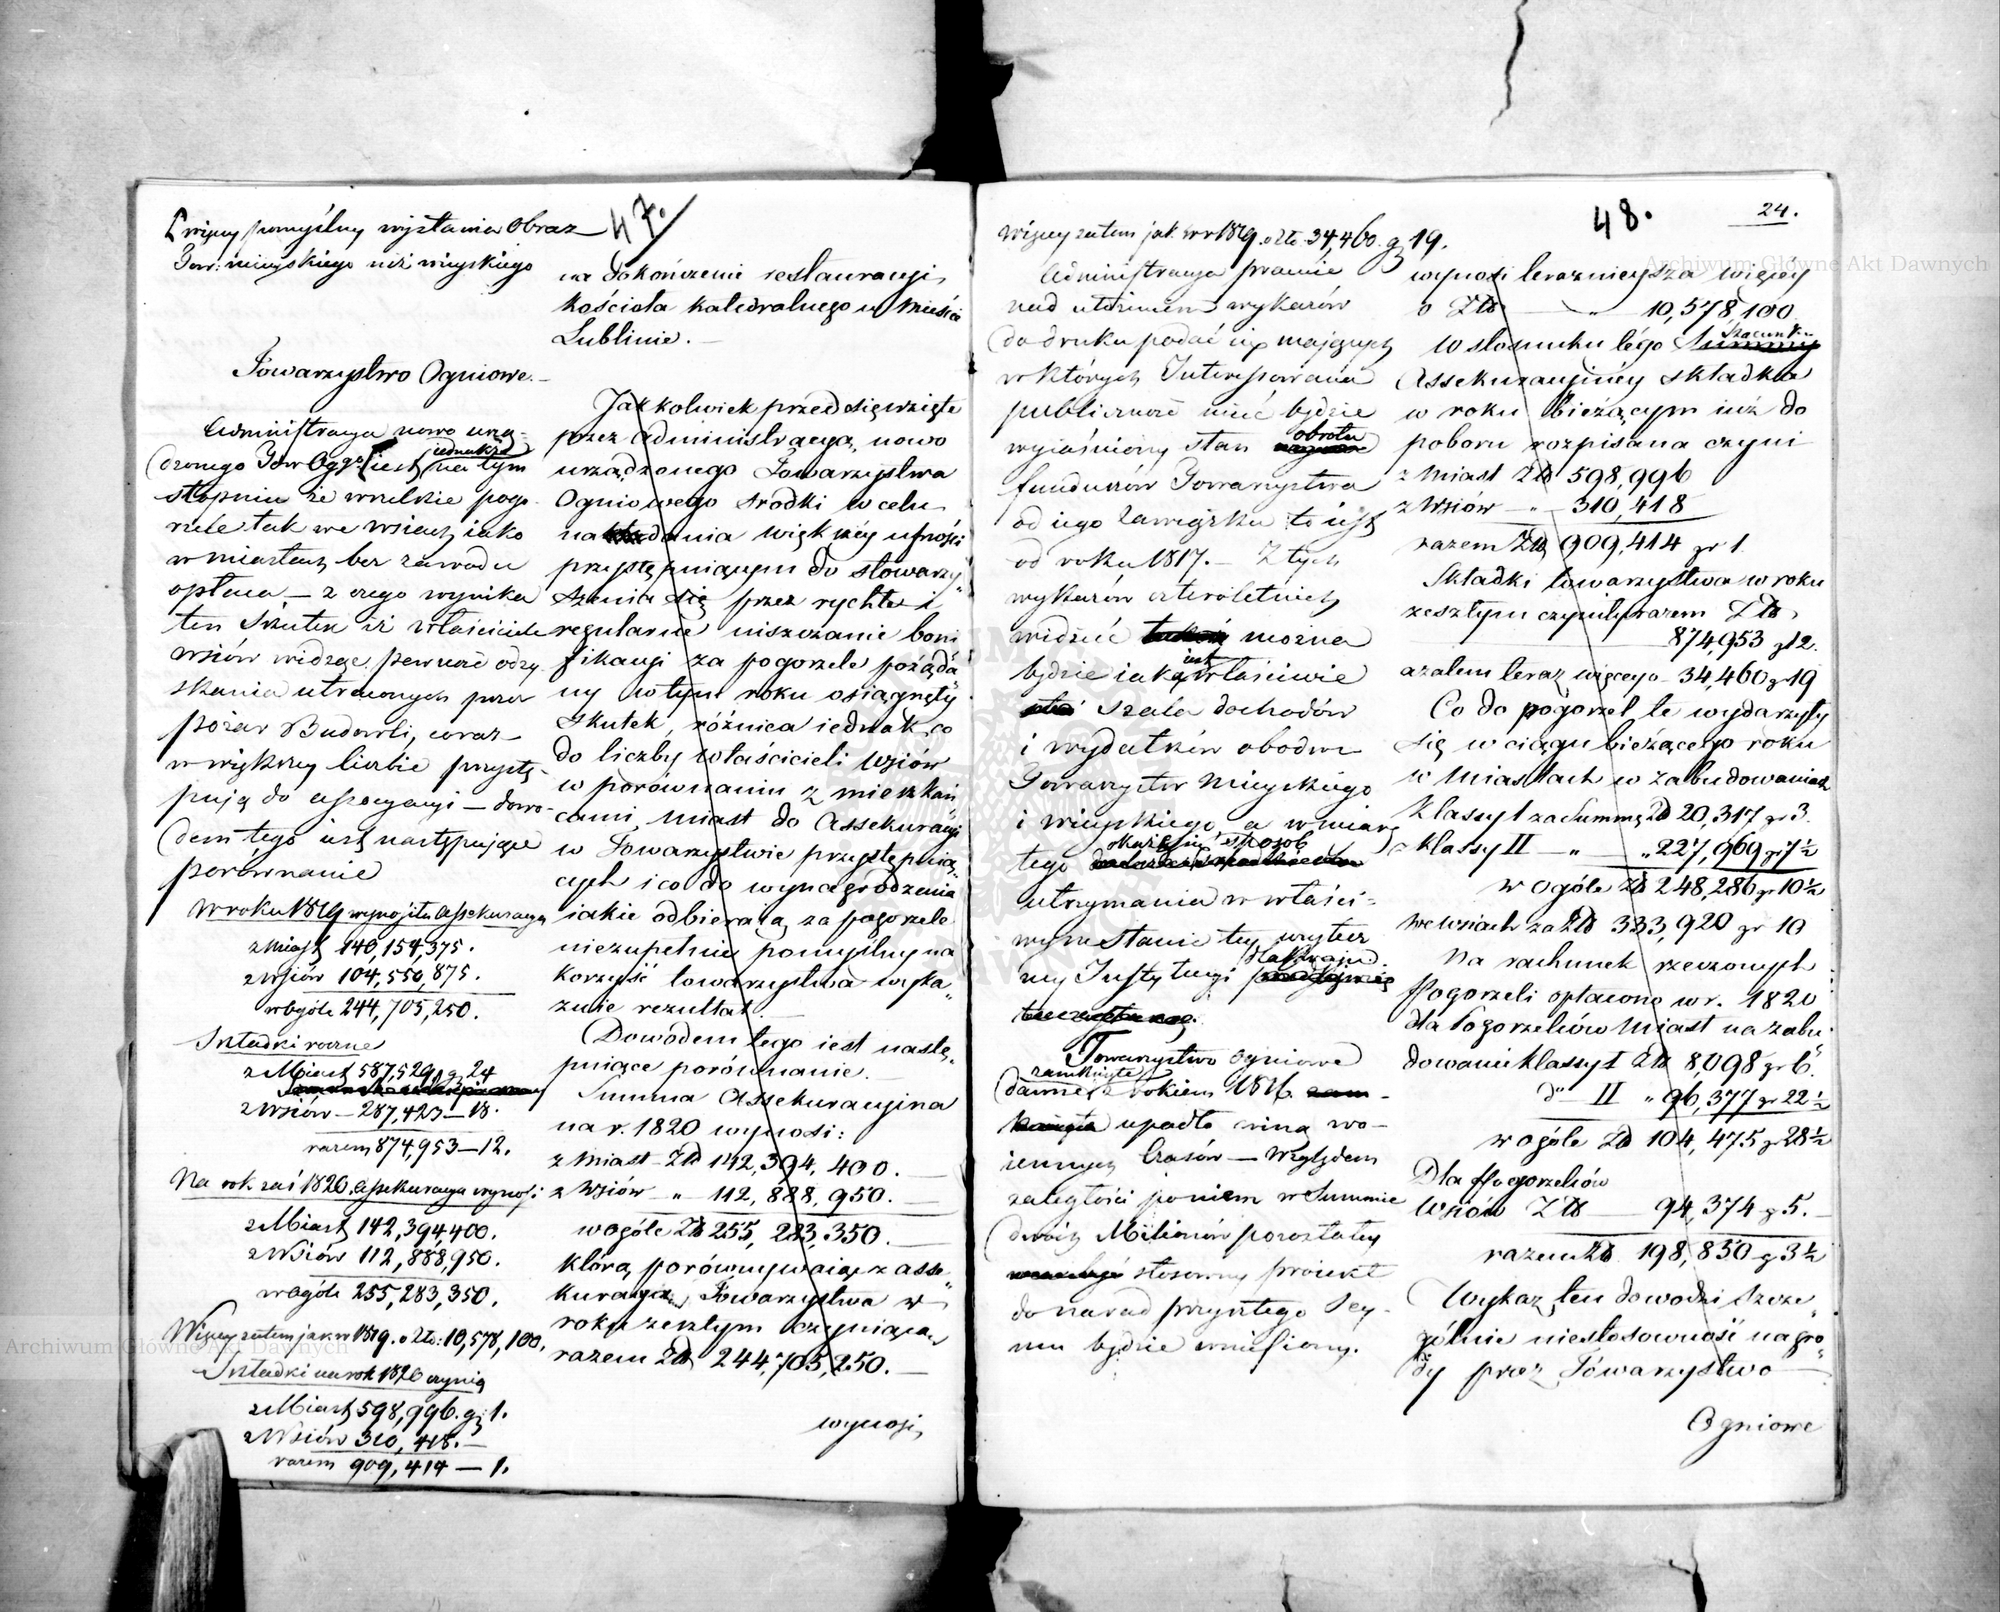 47.
więcey pomyślny wystawia obraz
Tow: mieyskiego niż wieyskiego
Towarzystwo Ogniowe.
Administracya nowo urzą-
dzonego Tow Oggo iest iednakże na tym
stopniu że wszelkie pogo-
rzele tak we wsiach iako
w miastach bez zawodu
opłaca — z czego wynika
ten skutek iż właściciele
wsiów widząc pewność odzy-
skania utraconych przez
pożar Budowli, coraz
w większey liczbie przystę-
pują do assekuracyi — dowo-
dem tego iest następuiące
porównanie
W roku 1819 wynosiła Assekuracya
z Miast 140,154,375.
z Wsiów 104,550,875.
w ogóle 244,705,250.
Składki roczne
z Miast 587,529 g. 24
z Wsiów — 287,423 — 18.
razem 874,953 — 12.
Na rok zaś 1820 Assekuracya wynosi
z Miast 142,394,400.
z Wsiów 112,888,950.
w ogóle 255,283,350.
Więcey zatem jak w 1819. o Złt: 10,578,100.
Składki na rok 1820 czynią
z Miast 598,996. g. 1.
z Wsiów 310,418. —
razem 909,414 — 1.
na dokończenie restauracyi
kościoła katedralnego w Mieście
Lublinie. —
Jakkolwiek przedsięwzięte
przez Administracyą nowo
urządzonego Towarzystwa
Ogniowego środki w celu
nadania większey ufności
przystępuiącym do stowarzy„
szenia się przez rychłe i
regularne uiszczanie boni
fikacyi za pogorzele pożąda
ny w tym roku osiągnęły
skutek, różnica iednak co
do liczby właścicieli wsiów
w porównaniu z mieszkań
cami miast do Assekuracyi
w Towarzystwie przystępuią„
cych i co do wynagrodzenia
iakie odbieraią za pogorzele
niezupełnie pomyślny na
korzyść towarzystwa wyka„
zuie rezultat. —
Dowodem tego iest nastę„
puiące porównanie.
Summa Assekuracyina
na r. 1820 wynosi:
z Miast — Złt 142,394,400. —
z Wsiów — „ — 112,888,950. —
w ogóle Złt 255,283,350. —
która porównywaiąc z asse„
kuracyą Towarzystwa w
roku zeszłym czyniącą
razem Złt 244,705,250. —
wynosi
48.
24.
więcey zatem jak w r 1819. o Złt. 34,460. g 19.
Administracya pracuie
nad ułożeniem wykazów
do druku podać się maiących
w których Interessowana
publiczność mieć będzie
wyiaśniony stan obrotu
funduszów Towarzystwa
od iego zawiązku to iest
od roku 1817. — Z tych
wykazów czteroletnich
widzieć można
będzie iaka iest właściwie
skala dochodów
i wydatków obodwu
Towarzystw Mieyskiego
i wieyskiego a w miarę
tego okaże się sposób
utrzymania w właści-
wym stanie tey użytecz
ney Instytucyi dla kraju.
Towarzystwo Ogniowe
dawne zamknięte z rokiem 1816
upadło winą wo-
iennych czasów — względem
zaległości po niem w Summie
dwóch Milionów pozostałey
stosowny proiekt
do narad przyszłego Sey-
mu będzie wniesiony.
wynosi terazniejsza więcey
o Złt — „ 10,578,100
W stosunku tego Szacunku
Assekuracyiney składka
w roku bieżącym już do
poboru rozpisana czyni
z Miast Złt 598,996
z Wsiów — „ — 310,418
razem Złt 909,414 gr 1
Składki towarzystwa w roku
zeszłym czyniły razem Złt
874,953 g 12.
a zatem teraz więcey o — 34,460 g 19
Co do pogorzel te wydarzyły
się w ciągu bieżącego roku
w Miastach w zabudowaniach
klassy I za Summę Złt 20,317 gr 3.
z klassy II — „ — „ 227,969 gr 7½
w ogóle Złt 248,286 gr 10½
we wsiach za Złt 333,920 gr 10
Na rachunek rzeczonych
Pogorzeli opłacono w r. 1820
dla Pogorzelców Miast na zabu„
dowanie klassy I Złt 8,098 gr 6.
do — II „ 96,377 gr 22½
w ogóle Złt 104,475 g 28½
Dla Pogorzelców
Wsiów Złt — 94,374 g 5. —
razem Złt 198,850 g 3½
Wykaz ten dowodzi szcze„
gólnie niestosowność nagro„
dy przez Towarzystwo
Ogniowe
Archiwum Główne Akt Dawnych
Archiwum Główne Akt Dawnych